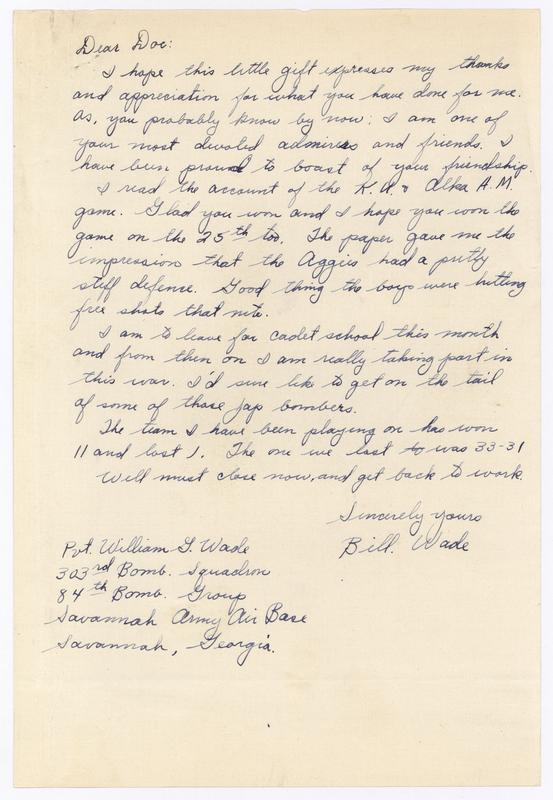 Dear Doc:
I hope this little gift expresses my thanks
and appreciation for what you have done for me.
As, you probably know by now; I am one of
your most devoted admirers and friends. I
have been proud to boast of your friendship.
I read the account of the K. U. & Okla A. M.
game. Glad you won and I hope you won the
game on the 25th too. The paper gave me the
impression that the Aggies had a pretty
stiff defence. Good thing the boys were hitting
free shots that nite.
I am to leave for cadet school this month
and from then on I am really taking part in
this war. I'd sure like to get on the tail
of some of those Jap bombers.
The team I have been playing on has won
11 and lost 1. The one we lost to was 33-31
Well must close now, and get back to work.
Sincerely yours
Bill. Wade
Pvt. William G. Wade
303rd Bomb. Squadron
84th Bomb. Group
Savannah Army Air Base
Savannah, Georgia.